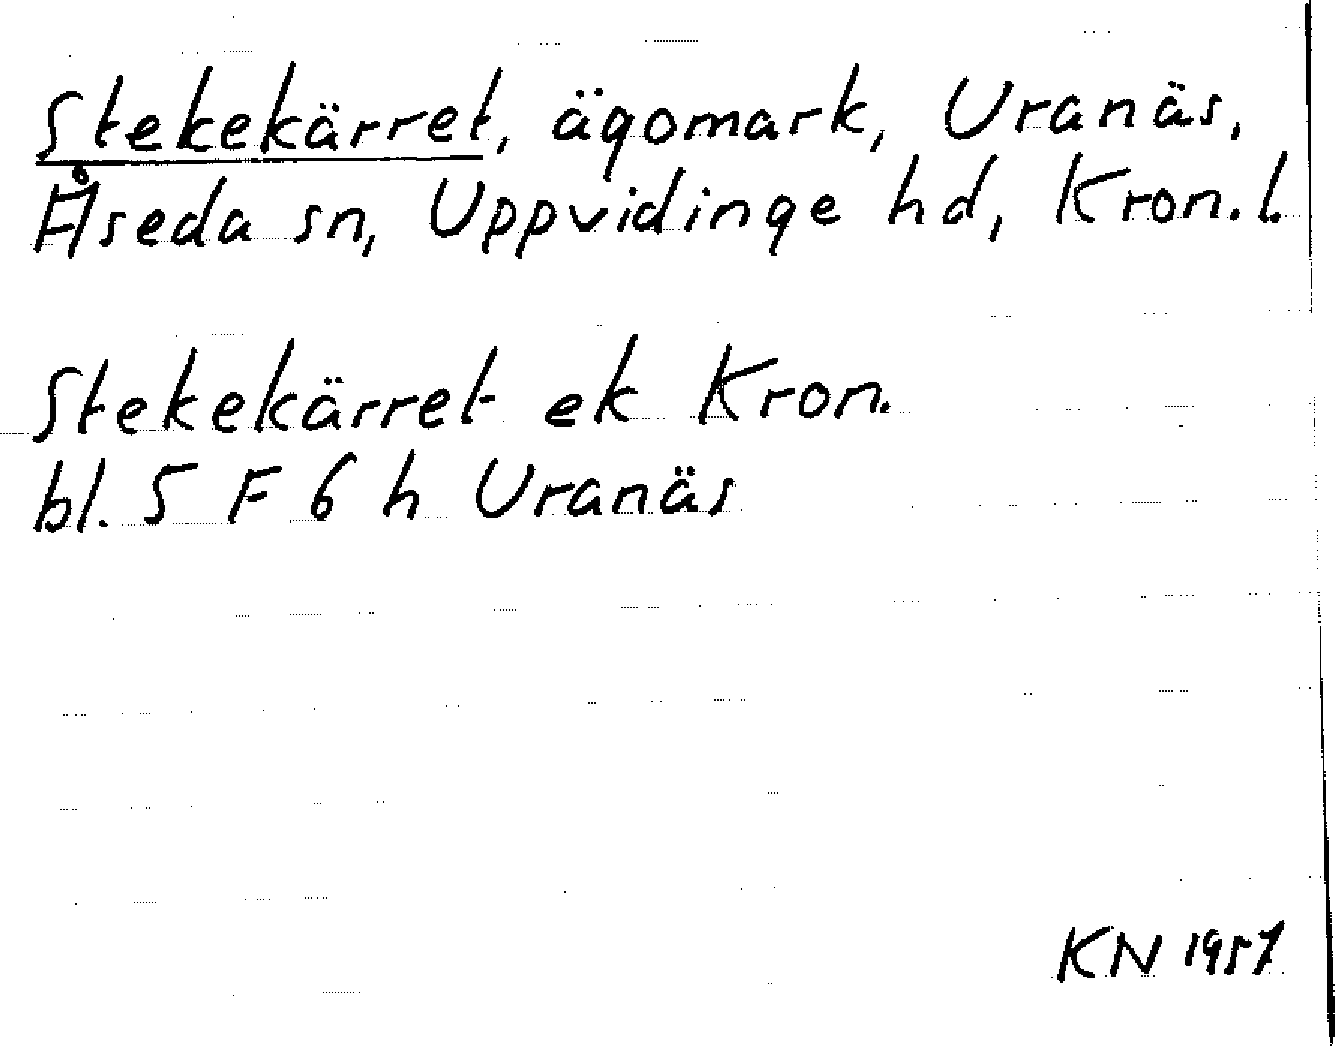 Stekekärret, ägomark, Uranäs,
Åseda sn, Uppvidinge hd, Kron. l.
Stekekärret ek Kron.
bl. 5 F 6 h Uranäs
KN 1957